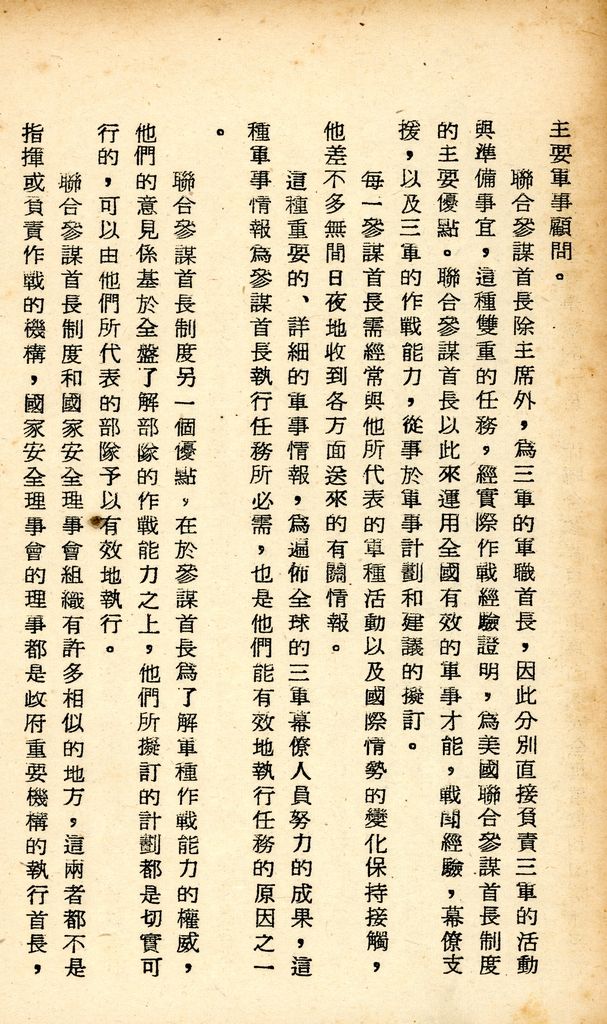 主要軍事顧問。
聯合參謀首長除主席外，為三軍的軍職首長，因此分別直接負責三軍的活動
與準備事宜，這種雙重的任務，經實際作戰經驗證明，為美國聯合參謀首長制度
的主要優點。聯合參謀首長以此來運用全國有效的軍事才能，戰鬪經驗，幕僚支
援，以及三軍的作戰能力，從事於軍事計劃和建議的擬訂。
每一參謀首長需經常與他所代表的軍種活動以及國際情勢的變化保持接觸，
他差不多無間日夜地收到各方面送來的有關情報。
這種重要的、詳細的軍事情報，為遍佈全球的三軍幕僚人員努力的成果，這
種軍事情報為參謀首長執行任務所必需，也是他們能有效地執行任務的原因之一
。
聯合參謀首長制度另一個優點，在於參謀首長為了解軍種作戰能力的權威，
他們的意見係基於全盤了解部隊的作戰能力之上，他們所擬訂的計劃都是切實可
行的，可以由他們所代表的部隊予以有效地執行。
聯合參謀首長制度和國家安全理事會組織有許多相似的地方，這兩者都不是
指揮或負責作戰的機構，國家安全理事會的理事都是政府重要機構的執行首長，